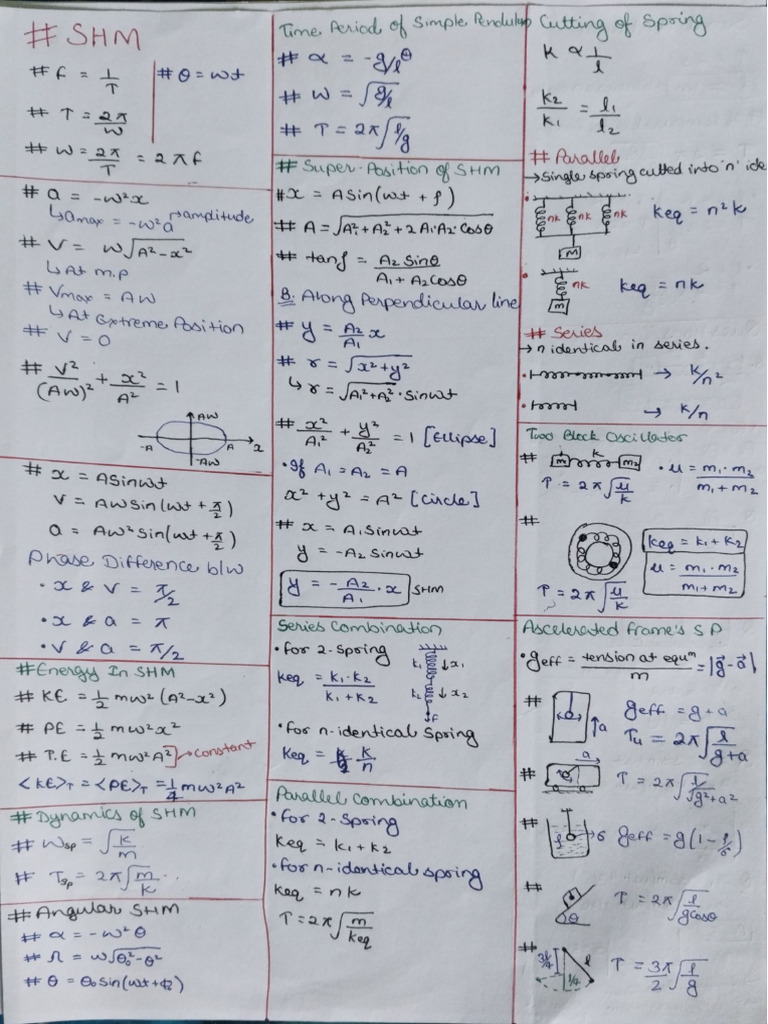 # SHM
# f = 1/T
# θ = ωt
# T = 2π/ω
# ω = 2π/T = 2πf
# a = -ω²x
↳ amax = -ω²a → amplitude
# V = ω√(A²-x²)
↳ At m.p
# Vmax = Aω
↳ At Extreme Position
# V = 0
# V²/(Aω)² + x²/A² = 1
Aω
-A A x
-Aω
# x = Asinωt
V = Aωsin(ωt + π/2)
a = Aω²sin(ωt + π/2)
Phase Difference b/w
• x & V = π/2
• x & a = π
• V & a = π/2
# Energy In SHM
# KE = 1/2 mω²(A²-x²)
# PE = 1/2 mω²x²
# T.E = 1/2 mω²A²] → Constant
<KE>T = <PE>T = 1/4 mω²A²
# Dynamics of SHM
# ωsp = √(K/m)
# Tsp = 2π√(m/K)
# Angular SHM
# α = -ω²θ
# Ω = ω√(θ0²-θ²)
# θ = θ0sin(ωt+φ)
Time Period of Simple Pendulum
# α = -g/l θ
# ω = √(g/l)
# T = 2π√(l/g)
# Super-Position of SHM
# x = ASin(ωt + f)
# A = √(A1²+A2²+2A1·A2·Cosθ)
# tanf = A2Sinθ/(A1+A2Cosθ)
B: Along Perpendicular line
# y = A2/A1 x
# r = √(x²+y²)
↳ r = √(A1²+A2²)·Sinωt
# x²/A1² + y²/A2² = 1 [Ellipse]
• If A1 = A2 = A
x²+y² = A² [Circle]
# x = A1Sinωt
y = -A2Sinωt
y = -A2/A1 · x SHM
Series Combination
• for 2-Spring
Keq = K1·K2/(K1+K2)
K1 ↓x1
K2 ↓x2
F
• for n-identical Spring
Keq = K/n
Parallel Combination
• for 2-Spring
Keq = K1+K2
• for n-identical spring
Keq = nK
T = 2π√(m/Keq)
Cutting of Spring
K ∝ 1/l
K2/K1 = l1/l2
# Parallel
→ Single spring cutted into 'n' ide
nK nK nK Keq = n²K
M
nK Keq = nK
M
# Series
→ n identical in series.
• → K/n²
• → K/n
Two Block Oscillator
# m1 K m2 • μ = m1·m2/(m1+m2)
T = 2π√(μ/K)
#
Keq = K1+K2
μ = m1·m2/(m1+m2)
T = 2π√(μ/K)
Ascelerated Frame's S P
• geff = tension at equⁿ/m = |g⃗-a⃗|
# ↑a geff = g+a
T4 = 2π√(l/(g+a))
# a T = 2π√(l/√(g²+a²))
# ρ σ geff = g(1-ρ/σ)
# θ T = 2π√(l/gcosθ)
# 3l/4 l l/4 T = 3π/2 √(l/g)